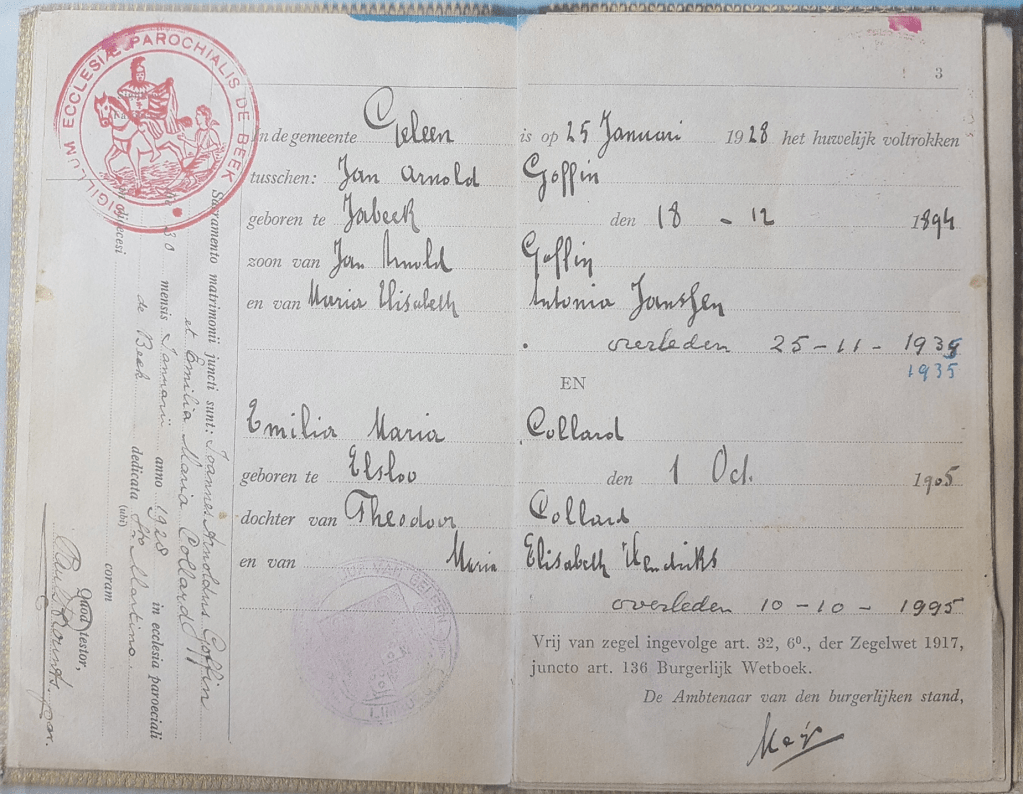 3
In de gemeente Geleen is op 25 Januari 1928 het huwelijk voltrokken
tusschen: Jan Arnold Goffin
geboren te Jabeek den 18 - 12 1894
zoon van Jan Arnold Goffin
en van Maria Elisabeth Antonia Janssen
overleden 25-11-1939
1935
EN
Emilia Maria Collard
geboren te Elsloo den 1 Oct. 1905
dochter van Theodoor Collard
en van Maria Elisabeth Hendriks
overleden 10-10-1995
Vrij van zegel ingevolge art. 32, 6º., der Zegelwet 1917,
juncto art. 136 Burgerlijk Wetboek.
De Ambtenaar van den burgerlijken stand,
SIGILLUM ECCLESIÆ PAROCHIALIS DE BEEK
Sacramento matrimonii juncti sunt: Joannes Arnoldus Goffin
et Emilia Maria Collard
die 30 mensis Januarii anno 1928 in ecclesia paroeciali
de Beek dedicata Sto Martino
(ubi)
dioecesi coram
Quod testor,